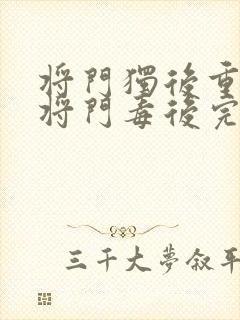 將門獨後重
將門毒後完
三千大夢叙平